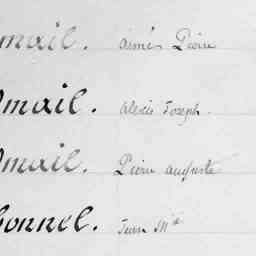 mail. Aimé Pierre
mail. Alexis Joseph.
mail. Pierre Auguste
onnel. Jean Mie